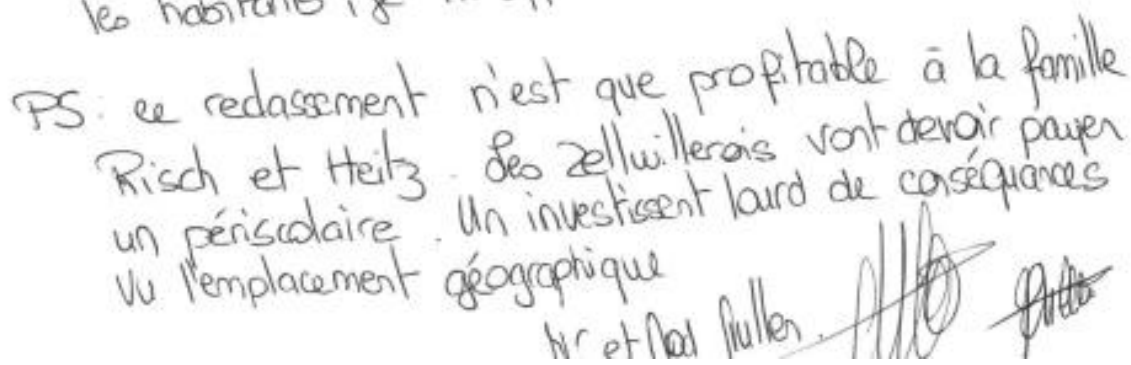 les habitants
PS: ce redassement n'est que profitable à la famille
Risch et Heitz. Les zellwillerois vont devoir payer
un périscolaire. Un investissent lourd de conséquances
Vu l'emplacement géographique
Mr et Mad Muller.